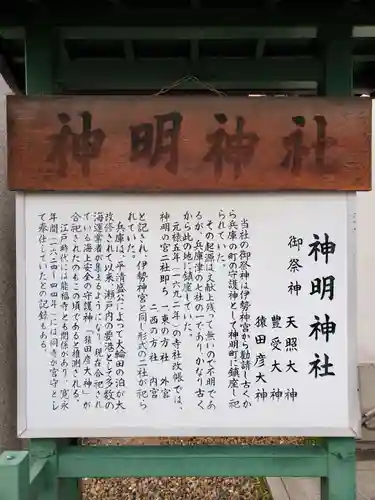 神明神社
神明神社
御祭神 天照大神
豊受大神
猿田彦大神
当社の御祭神は伊勢神宮から勧請し古くか
ら兵庫の町の守護神として神明町に鎮座し祀
られていた。
その起源は文献上残って無いので不明であ
るが、兵庫津の七社の一であり、かなり古く
から此の地に鎮座していた。
元禄五年(一六九二年)の寺社改帳では、
神明の宮二社即ち、一、東の方社 外宮
二、西の方社 内宮
と記され、伊勢神宮と同じ形式の二社が祀ら
れていた。
兵庫は、平清盛公によって大輪田の泊が大
改修されて以来、瀬戸内の要港として多数の
海運業者が集まるようになり、現在合祀され
ている海上安全の守護神、「猿田彦大神」が
合祀されたのもこの頃であると推測される。
江戸時代には能福寺とも関係があり、寛永
年間(一六二四~四四年)には同寺が宮守とし
て奉仕していたとの記録である。